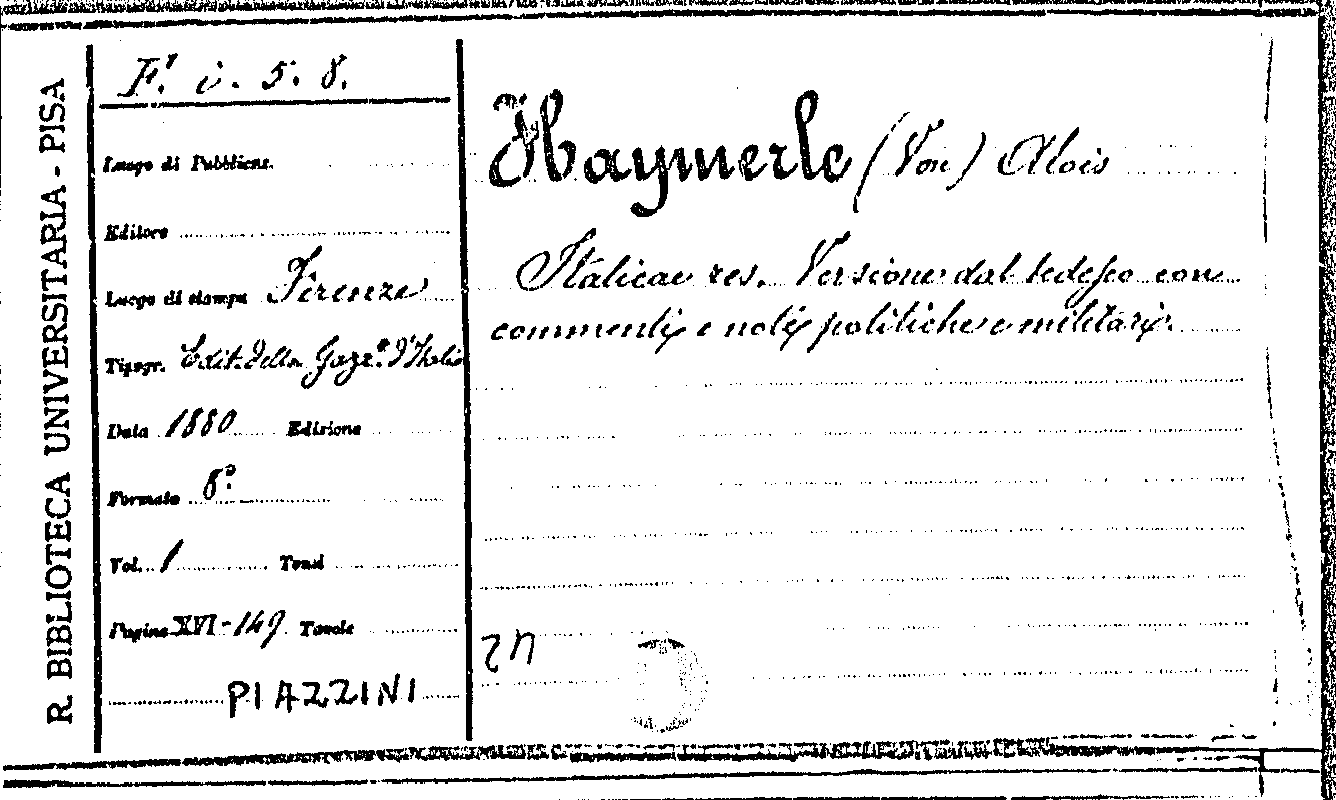 R. BIBLIOTECA UNIVERSITARIA - PISA
F. i. 5. 8.
Luogo di Pubblicaz.
Editore
Luogo di stampa Firenze
Tipogr. Edit. della Gazz.ª d'Italia
Data 1880 Edizione
Formato 8º
Vol. 1 Tomi
Pagine XVI-149 Tavole
PIAZZINI
Haymerle (Von) Alois
Italicae res. Versione dal tedesco con
commenti e note politiche e militari.